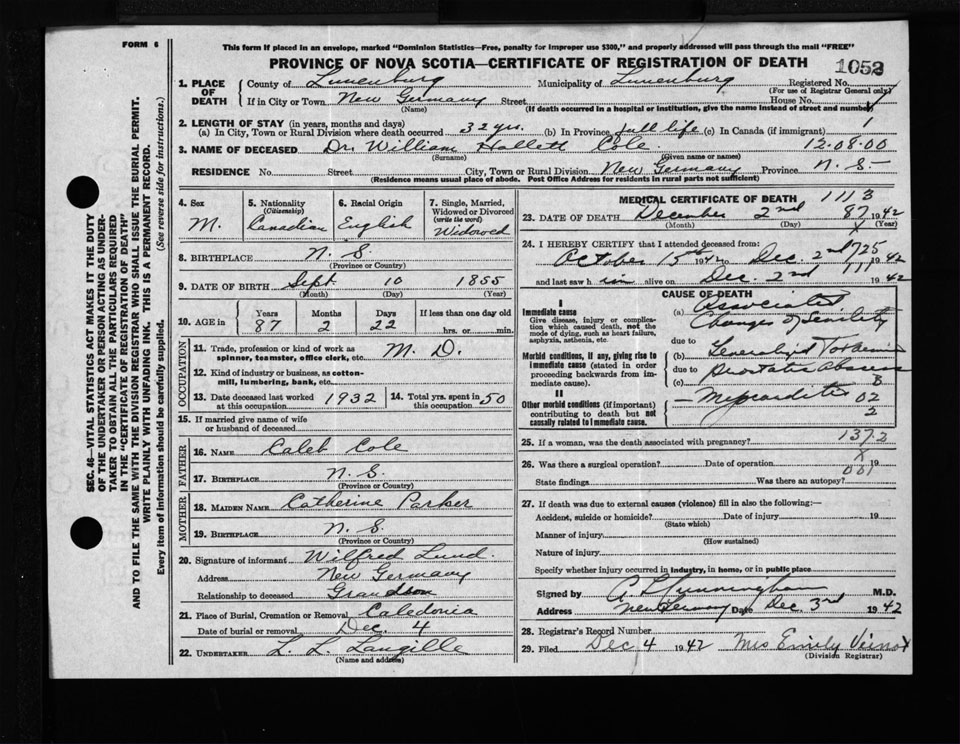 FORM 6
This form if placed in an envelope, marked "Dominion Statistics—Free, penalty for improper use $300," and properly addressed will pass through the mail "FREE"
PROVINCE OF NOVA SCOTIA—CERTIFICATE OF REGISTRATION OF DEATH
1052
1. PLACE OF DEATH
County of Lunenburg Municipality of Lunenburg Registered No.
(For use of Registrar General only)
If in City or Town New Germany Street House No.
(Name) (If death occurred in a hospital or institution, give the name instead of street and number)
2. LENGTH OF STAY (in years, months and days) 1
(a) In City, Town or Rural Division where death occurred 32 yrs. (b) In Province full life (c) In Canada (if immigrant)
3. NAME OF DECEASED Dr. William Hallett Cole. 12.08.00
(Surname) (Given name or names)
RESIDENCE No. Street City, Town or Rural Division New Germany Province N.S.
(Residence means usual place of abode. Post Office Address for residents in rural parts not sufficient)
4. Sex M.
5. Nationality (Citizenship) Canadian
6. Racial Origin English
7. Single, Married, Widowed or Divorced (write the word) Widowed
8. BIRTHPLACE N.S
(Province or Country)
9. DATE OF BIRTH Sept 10 1855
(Month) (Day) (Year)
10. AGE in Years Months Days If less than one day old
87 2 22 hrs. or min.
OCCUPATION
11. Trade, profession or kind of work as spinner, teamster, office clerk, etc. M. D.
12. Kind of industry or business, as cotton-mill, lumbering, bank, etc.
13. Date deceased last worked at this occupation 1932 14. Total yrs. spent in this occupation 50
15. If married give name of wife or husband of deceased
FATHER
16. NAME Caleb Cole
17. BIRTHPLACE N.S.
(Province or Country)
MOTHER
18. MAIDEN NAME Catherine Parker
19. BIRTHPLACE N.S
(Province or Country)
20. Signature of informant Wilfred Lund.
Address New Germany
Relationship to deceased Grandson
21. Place of Burial, Cremation or Removal Caledonia
Date of burial or removal Dec. 4
22. UNDERTAKER L. L. Langille
(Name and address)
MEDICAL CERTIFICATE OF DEATH 111 3
23. DATE OF DEATH December 2nd 87 1942
(Month) (Day) X (Year)
24. I HEREBY CERTIFY that I attended deceased from:
October 15th 1942 to Dec. 2nd 1942
and last saw him alive on Dec 2nd 1942
CAUSE OF DEATH
I
Immediate cause
Give disease, injury or complication which caused death, not the mode of dying, such as heart failure, asphyxia, asthenia, etc.
(a) Associated
Changes of Senility
due to
Morbid conditions, if any, giving rise to immediate cause (stated in order proceeding backwards from immediate cause).
(b) Generalized
due to Prostatic Abscess
(c)
II
Other morbid conditions (if important) contributing to death but not causally related to immediate cause.
B
02
2
25. If a woman, was the death associated with pregnancy? 137.2
X
26. Was there a surgical operation? Date of operation 19
001
State findings Was there an autopsy?
27. If death was due to external causes (violence) fill in also the following:—
Accident, suicide or homicide? Date of injury 19
(State which)
Manner of injury
(How sustained)
Nature of injury
Specify whether injury occurred in industry, in home, or in public place
Signed by A. Cunningham M.D.
Address New Germany Date Dec. 3rd 1942
28. Registrar's Record Number
29. Filed Dec 4 1942 Mrs Emily Vienot
(Division Registrar)
SEC. 46—VITAL STATISTICS ACT MAKES IT THE DUTY
OF THE UNDERTAKER OR PERSON ACTING AS UNDER-
TAKER TO OBTAIN ALL THE PARTICULARS REQUIRED
IN THE "CERTIFICATE OF REGISTRATION OF DEATH"
AND TO FILE THE SAME WITH THE DIVISION REGISTRAR WHO SHALL ISSUE THE BURIAL PERMIT.
WRITE PLAINLY WITH UNFADING INK. THIS IS A PERMANENT RECORD.
Every item of information should be carefully supplied. (See reverse side for instructions.)